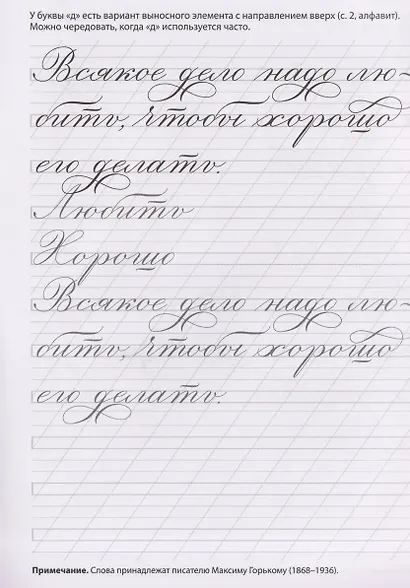 У буквы «д» есть вариант выносного элемента с направлением вверх (с. 2, алфавит).
Можно чередовать, когда «д» используется часто.
Всякое дело надо лю-
бить, чтобы хорошо
его делать.
Любить
Хорошо
Всякое дело надо лю-
бить, чтобы хорошо
его делать.
Примечание. Слова принадлежат писателю Максиму Горькому (1868–1936).